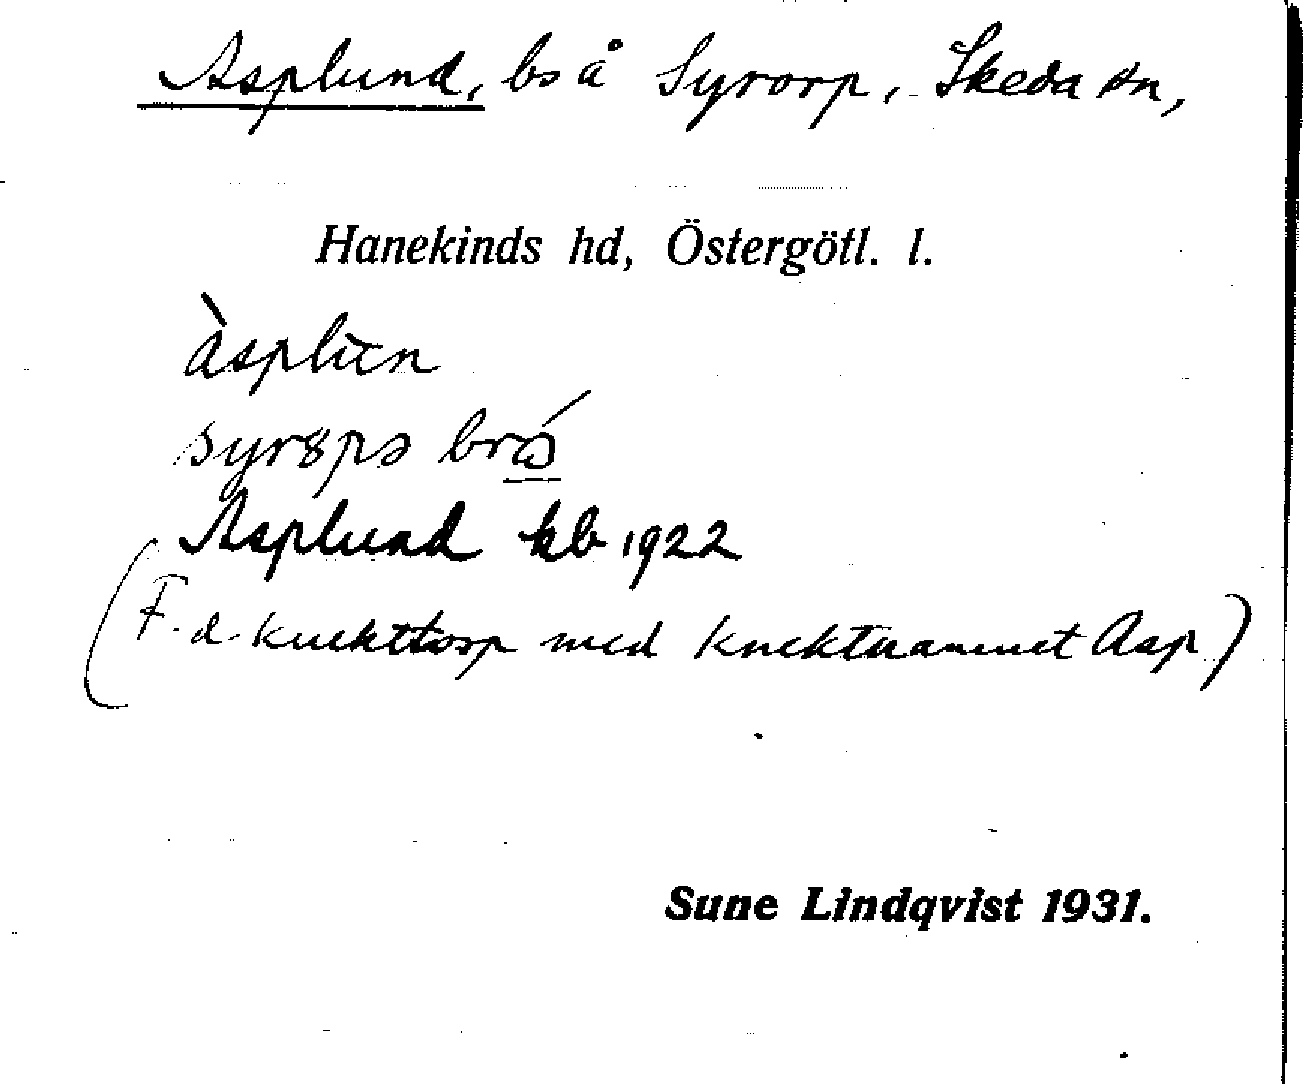 Asplund, bs å Syrorp, Skeda sn,
Hanekinds hd, Östergötl. l.
àsplun
Asplund kb 1922
(F. d. knekttorp med knektnamnet Asp)
Sune Lindqvist 1931.